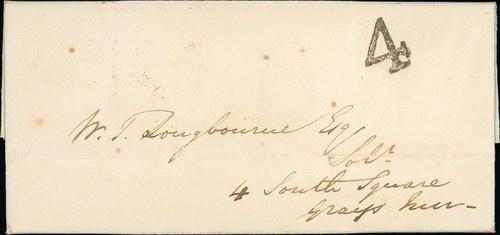 4
W. T. Longbourne Esq
Solr.
4 South Square
Grays Inn